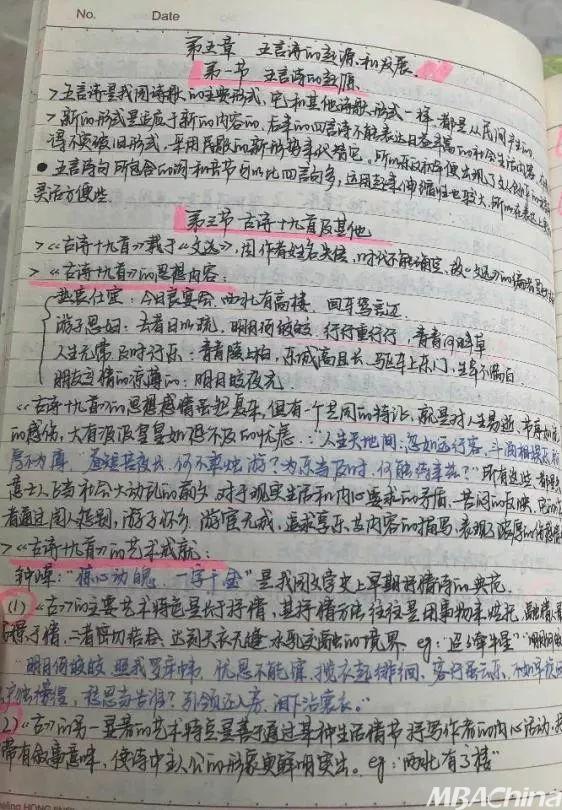 No.
Date
第五章 五言诗的起源和发展.
第一节 五言诗的起源.
>五言诗是我国诗歌的主要形式, 它和其他诗歌形式一样 都是从民间产生的.
>新的形式是适应于新的内容的, 后来的四言诗不能表达日益丰富的社会生活内容,
得不突破旧形式, 采用民歌的新形势来代替它, 所以东汉初年便出现了文人
●五言诗句所包含的词和音节可以比四言句多, 运用起来伸缩性也较大, 所以在表达上
灵活方便些.
第三节 古诗十九首及其他
><<古诗十九首>>载于<<文选>>, 因作者姓名失传, 时代不能确定, 故<<文选>>的编者
> <<古诗十九首>>的思想内容:
热衷仕宦: 今日良宴会 西北有高楼. 回车驾言迈
游子思妇: 去者日以疏, 明月何皎皎, 行行重行行, 青青河畔草
人生无常 及时行乐: 青青陵上柏, 东城高且长, 驱车上东门, 生年不满百.
朋友交情的凉薄的: 明月皎夜光
<<古诗十九首>>的思想感情虽然复杂, 但有一个共同的特征, 就是对人生易逝, 节序如流
的感伤, 大有汲汲皇皇如恐不及的忧虑.: "人生天地间, 忽如远行客, 斗酒相娱乐 聊
厚不为薄" "昼短苦夜长, 何不秉烛游? 为乐当及时, 何能待来兹?" 所有这些, 都是
意士人在当社会大动乱的前夕 对于现实生活和内心要求的矛盾、苦闷的反映, 它的作
者通过闺人怨别, 游子怀乡 游宦无成, 追求享乐, 其内容的描写, 表现了浓厚的
> <<古诗十九首>>的艺术成就:
钟嵘: "惊心动魄, 一字千金" 是我国文学史上早期抒情诗的典范.
(1) <<古>>的主要艺术特色是长于抒情, 其抒情方法往往是用事物来烘托, 融情入景
景于情, 二者密切结合 达到天衣无缝 水乳交融的境界. eg: "迢迢牵牛星" "明月何皎
"明月何皎皎 照我罗床帏. 忧愁不能寐, 揽衣起徘徊. 客行虽云乐, 不如早旋归
出户独彷徨, 愁思当告谁? 引领还入房, 泪下沾裳衣."
(2) <<古>>的另一显著的艺术特点是善于通过某种生活情节 抒写作者的内心活动,
带有叙事意味, 使诗中主人公的形象更鲜明突出. eg: "西北有高楼"
MBAChina